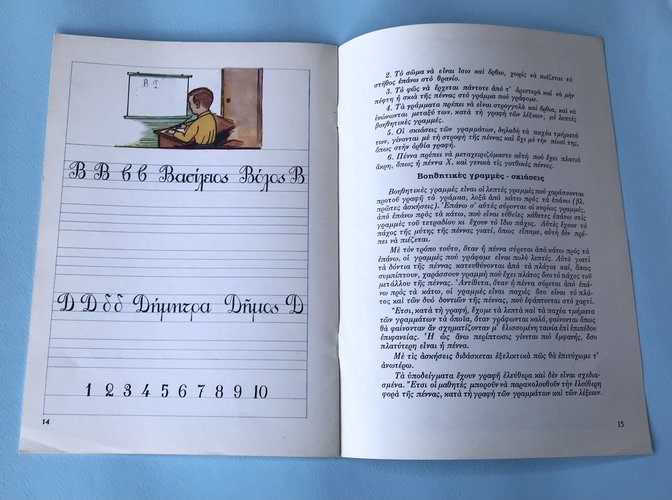 Β Β
Β Β ϐ ϐ Βασίλειος Βόλος Β
D D δ δ Dήμητρα Dῆμος D
1 2 3 4 5 6 7 8 9 10
14
2. Τὸ σῶμα νὰ εἶναι ἴσιο καὶ ὄρθιο, χωρὶς νὰ πιέζεται τὸ
στῆθος ἐπάνω στὸ θρανίο.
3. Τὸ φῶς νὰ ἔρχεται πάντοτε ἀπό τ' ἀριστερὰ καὶ νὰ μὴν
πέφτη ἡ σκιὰ τῆς πέννας στὸ γράμμα ποὺ γράφομε.
4. Τὰ γράμματα πρέπει νὰ εἶναι στρογγυλὰ καὶ ὄρθια, καὶ νὰ
ἑνώνωνται μεταξύ των, κατὰ τὴ γραφὴ τῶν λέξεων, μὲ λεπτὲς
βοηθητικὲς γραμμές.
5. Οἱ σκιάσεις τῶν γραμμάτων, δηλαδὴ τὰ παχέα τμήματά
των, γίνονται μὲ τὴ στροφὴ τῆς πέννας καὶ ὄχι μὲ τὴν πίεσή της,
ὅπως στὴν ὀρθία γραφή.
6. Πέννα πρέπει νὰ μεταχειριζώμαστε αὐτὴ ποὺ ἔχει πλατιὰ
ἄκρη, ὅπως ἡ πέννα Χ, καὶ γενικὰ τὶς γοτθικὲς πέννες.
Βοηθητικὲς γραμμὲς - σκιάσεις
Βοηθητικὲς γραμμὲς εἶναι οἱ λεπτὲς γραμμὲς ποὺ χαράσσονται
προτοῦ γραφῆ τὸ γράμμα, λοξὰ ἀπὸ κάτω πρὸς τὰ ἐπάνω (βλ.
πρῶτες ἀσκήσεις). Ἐπάνω σ' αὐτὲς σύρονται οἱ κυρίως γραμμές,
ἀπὸ ἐπάνω πρὸς τὰ κάτω, ποὺ εἶναι εὐθεῖες κάθετες ἐπάνω στὶς
γραμμὲς τοῦ τετραδίου κι ἔχουν τὸ ἴδιο πάχος. Αὐτὲς ἔχουν τὸ
πάχος τῆς μύτης τῆς πέννας γιατί, ὅπως εἴπαμε, αὐτὴ δὲν πρέ-
πει νὰ πιέζεται.
Μὲ τὸν τρόπο τοῦτο, ὅταν ἡ πέννα σύρεται ἀπὸ κάτω πρὸς τὰ
ἐπάνω, οἱ γραμμὲς ποὺ γράφομε εἶναι πολὺ λεπτές. Αὐτὸ γιατὶ
τὰ δόντια τῆς πέννας κατευθύνονται ἀπὸ τὰ πλάγια καί, ὅπως
συμπίπτουν, χαράσσουν γραμμὴ ποὺ ἔχει πλάτος ὅσο τὸ πάχος τοῦ
μετάλλου τῆς πέννας. Ἀντίθετα, ὅταν ἡ πέννα σύρεται ἀπὸ ἐπά-
νω πρὸς τὰ κάτω, οἱ γραμμὲς εἶναι παχιὲς ὅσο εἶναι τὸ πλά-
τος καὶ τῶν δυὸ δοντιῶν τῆς πέννας, ποὺ ἐφάπτονται στὸ χαρτί.
Ἔτσι, κατὰ τὴ γραφή, ἔχομε τὰ λεπτὰ καὶ τὰ παχέα τμήματα
τῶν γραμμάτων τὰ ὁποῖα, ὅταν γράφωνται καλά, φαίνονται ὅπως
θὰ φαίνονταν ἂν σχηματίζονταν μ' ἑλισσομένη ταινία ἐπὶ ἐπιπέδου
ἐπιφανείας. Ἡ ὡς ἄνω περίπτωσις γίνεται πιὸ ἐμφανής, ὅσο
πλατύτερη εἶναι ἡ πέννα.
Μὲ τὶς ἀσκήσεις διδάσκεται ἐξελικτικὰ πῶς θὰ ἐπιτύχωμε τ'
ἀνωτέρω.
Τὰ ὑποδείγματα ἔχουν γραφῆ ἐλεύθερα καὶ δὲν εἶναι σχεδια-
σμένα. Ἔτσι οἱ μαθητὲς μποροῦν νὰ παρακολουθοῦν τὴν ἐλεύθερη
φορὰ τῆς πέννας, κατὰ τὴ γραφὴ τῶν γραμμάτων καὶ τῶν λέξεων.
15